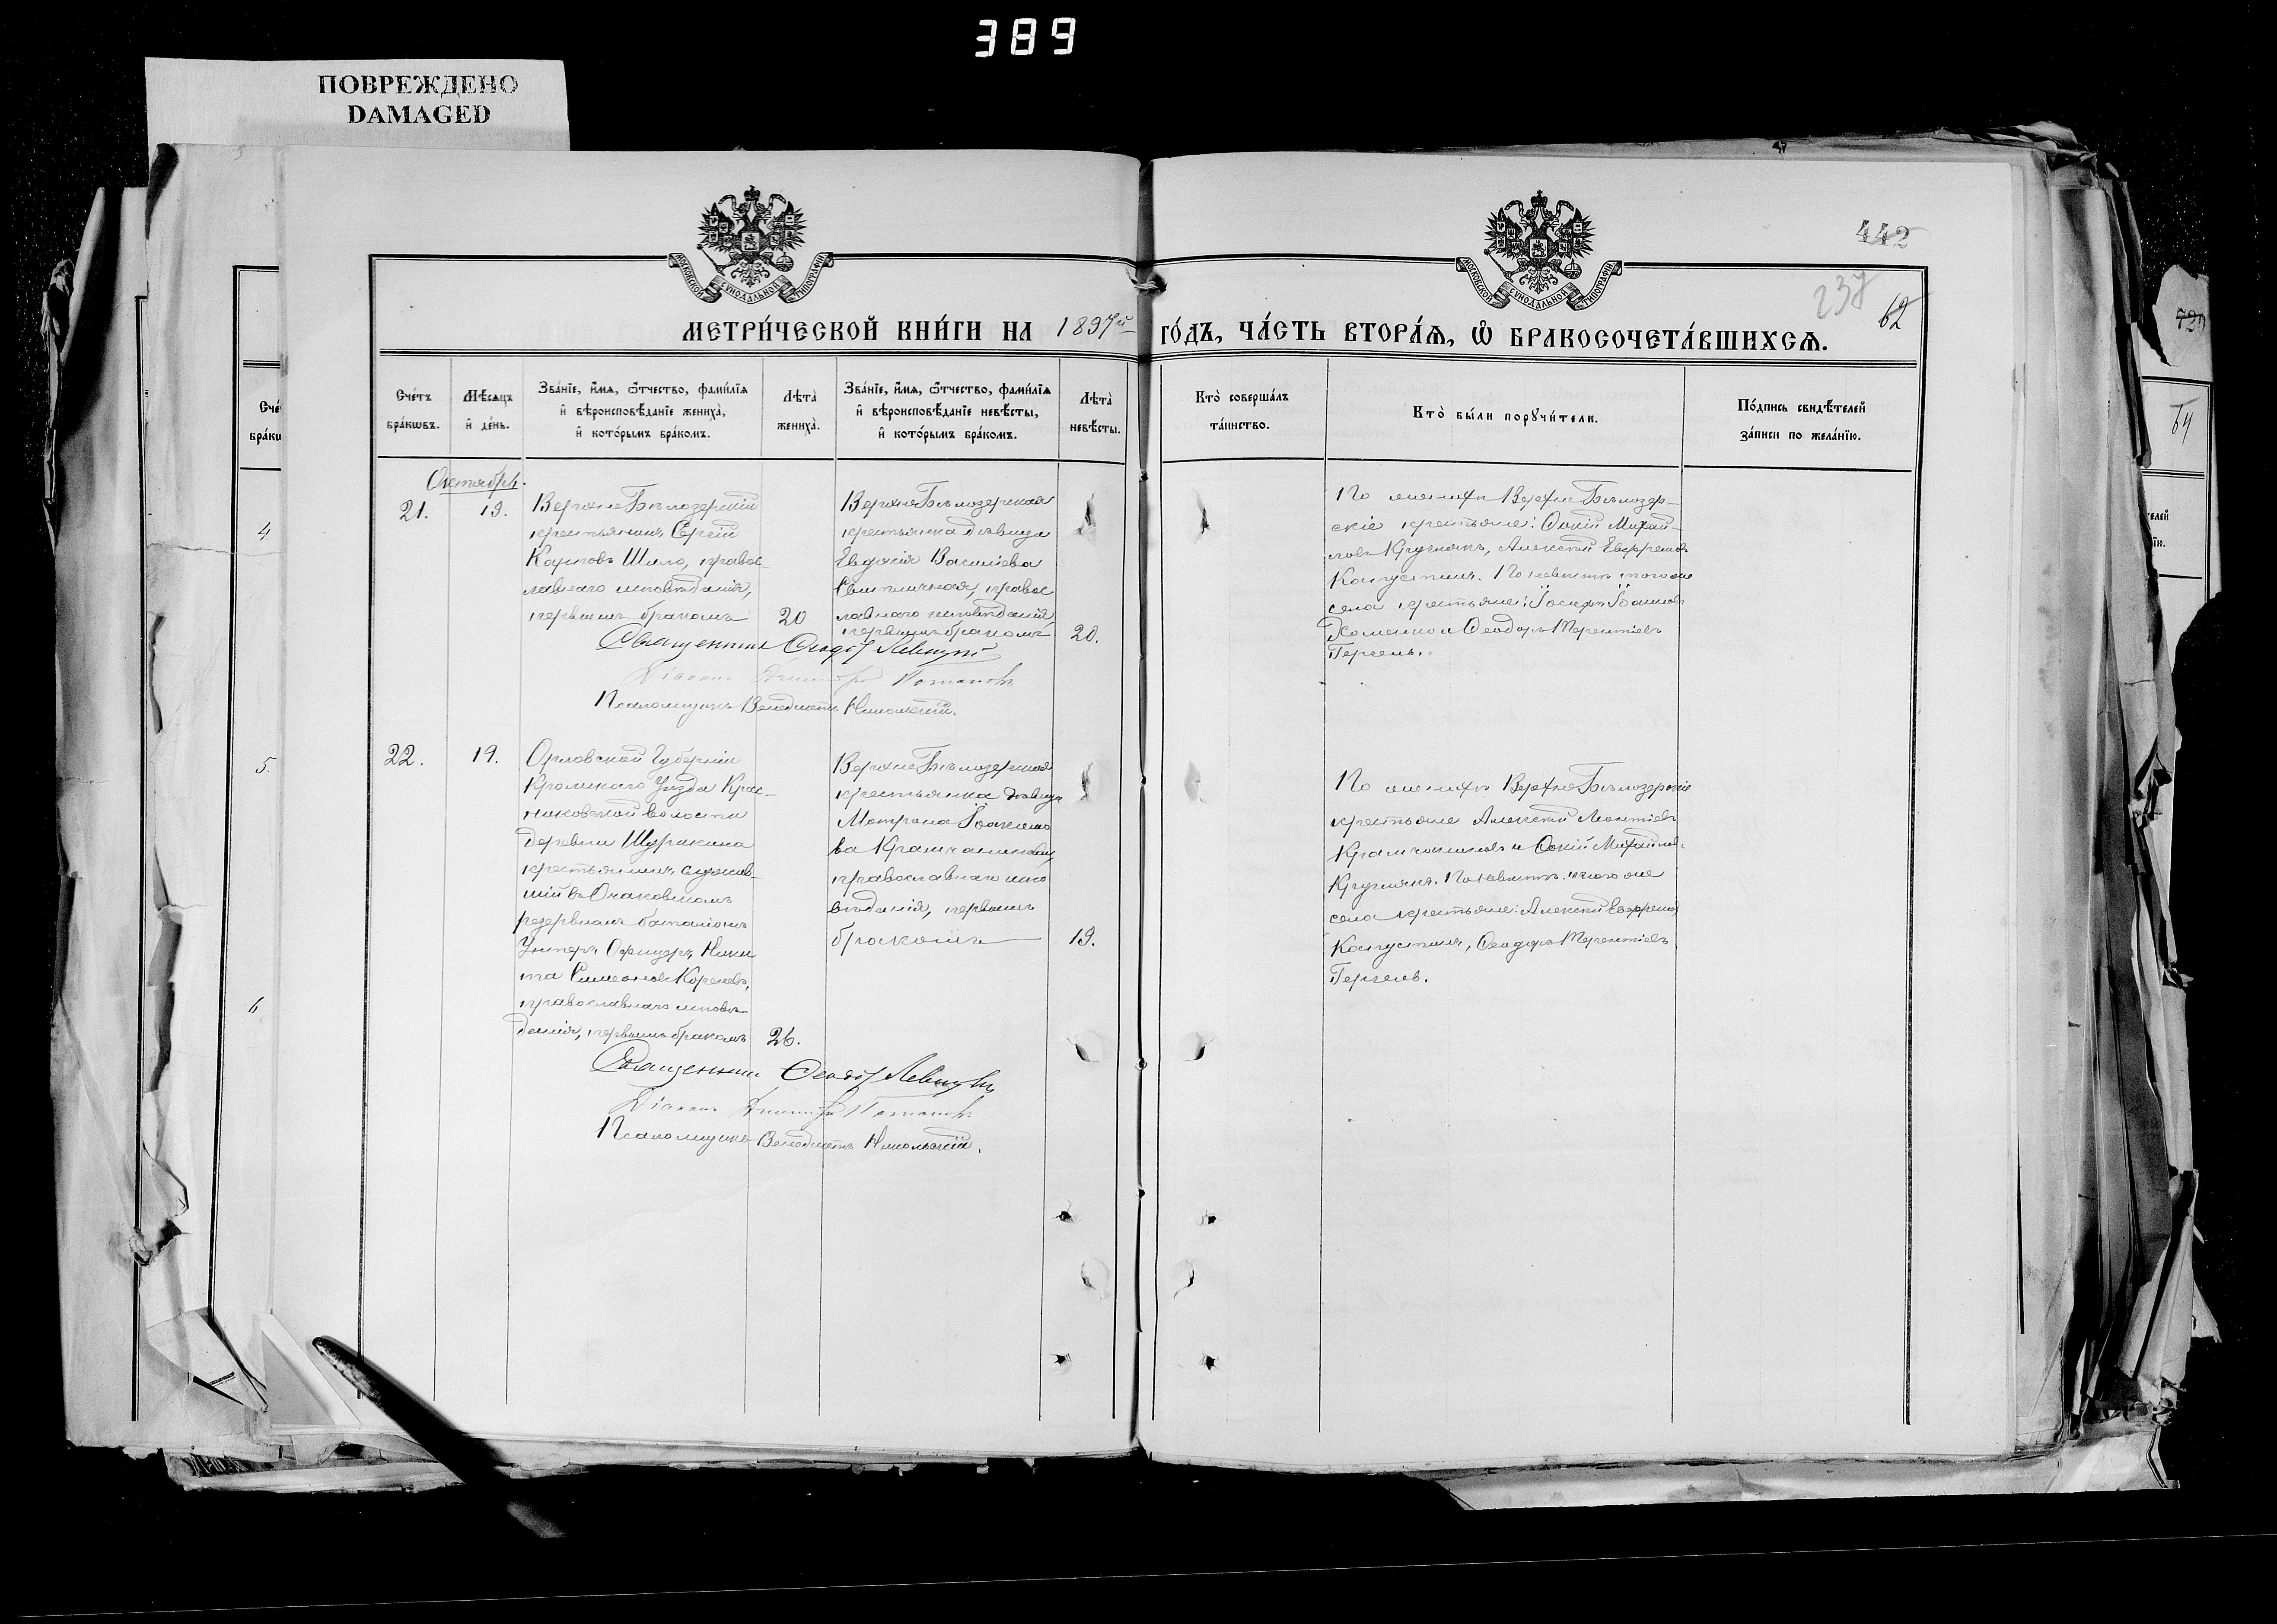 389
ПОВРЕЖДЕНО
DAMAGED
МОСКОВСКОЙ СУНОДАЛЬНОЙ ТИПОГРАФІИ
МОСКОВСКОЙ СУНОДАЛЬНОЙ ТИПОГРАФІИ
442
237
62
МЕТРИ́ЧЕСКОЙ КНИ́ГИ НА 1897й ГО́ДЪ, ЧА́СТЬ ВТОРА́Ѧ, Ѽ БРАКОСОЧЕТА́ВШИХСѦ.
Сче́тъ
бра́кωвъ.
Мѣ́сѧцъ
и҆ де́нь.
Зва́нїе, и҆́мѧ, ѻ҆́тчество, фами́лїѧ
и҆ вѣроисповѣ́данїе жениха̀,
и҆ кото́рымъ бра́комъ.
Лѣта̀
жениха̀.
Зва́нїе, и҆́мѧ, ѻ҆́тчество, фами́лїѧ
и҆ вѣроисповѣ́данїе невѣ́сты,
и҆ кото́рымъ бра́комъ.
Лѣта̀
невѣ́сты.
Кто̀ соверша́лъ
та́инство.
Кто̀ бы́ли порꙋчи́тели.
По́дпись свидѣ́телей
за́писи по жела́нїю.
Октябрь.
21.
19.
ВерхнеБѣлозерскій
крестьянинъ Сергій
Карповъ Шило, правос-
лавнаго исповѣданія,
первымъ бракомъ
20
ВерхнеБѣлозерская
крестьянка дѣвица
Евдокія Василіева
правос
лавнаго исповѣданія,
первымъ бракомъ
20.
По женихѣ ВерхнеБѣлозер-
скіе крестьяне: Михай-
ловъ Алексѣй Евфремовъ
Капустинъ. По невѣстѣ того же
села крестьяне: Іосифъ Іоанновъ
Хоменко и Ѳеодоръ Терентіевъ
Гергель.
Священникъ Ѳеодоръ
Діаконъ Димитрій Потаповъ
Псаломщикъ Венедиктъ Никольскій.
22.
19.
Орловской Губерніи
Кромскаго Уѣзда
волости
деревни Шуракина
крестьянинъ служив-
шій въ Очаковскомъ
резервномъ баталіонѣ
Унтеръ Офицеръ Ники
та Симеоновъ Кореневъ,
православнаго исповѣ-
данія, первымъ бракомъ
26.
ВерхнеБѣлозерская
крестьянка дѣвица
Матрона Іоакимо
ва
православнаго испо
вѣданія, первымъ
бракомъ
19.
По женихѣ ВерхнеБѣлозерскіе
крестьяне Алексѣй Леонтіевъ
и Михайловъ
По невѣстѣ того же
села крестьяне: Алексѣй Евфремовъ
Капустинъ, Ѳеодоръ Терентіевъ
Гергель.
Священникъ Ѳеодоръ
Діаконъ Димитрій Потаповъ
Псаломщикъ Венедиктъ Никольскій.
4
5.
6
64